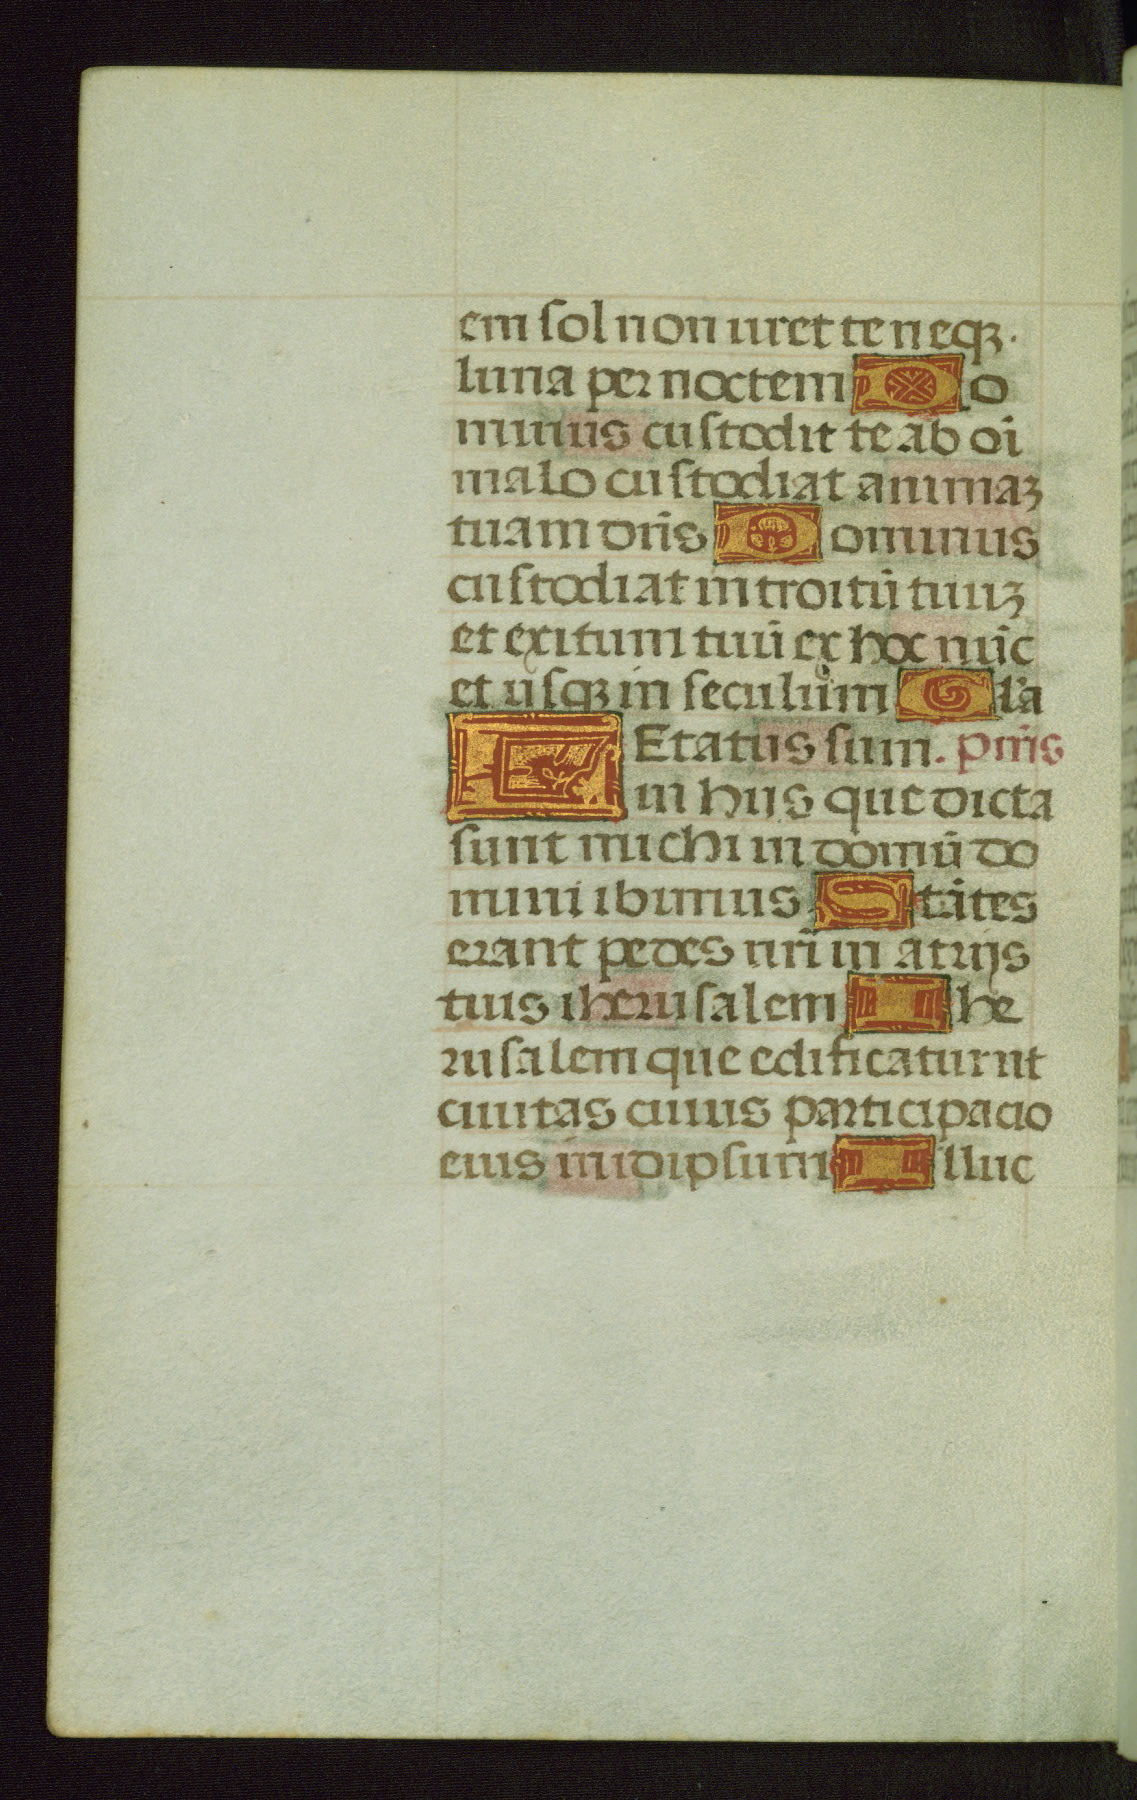 em sol non uret te neqꝫ·
luna per noctem Do
minus custodit te ab oı̄
malo custodiat animaꝫ
tuam dn̄s Dominus
custodiat introitū tuuꝫ
et exitum tuū ex hoc nūc
et usqꝫ in seculum Gl'a
LEtatus sum. pm̄s
in hijs que dicta
sunt michi in domū do
mini ibimus Stātes
erant pedes nr̄i in atrijs
tuis iherusalem Ihe
rusalem que edificatur ut
ciuitas cuius participacio
eius inidipsum Illuc